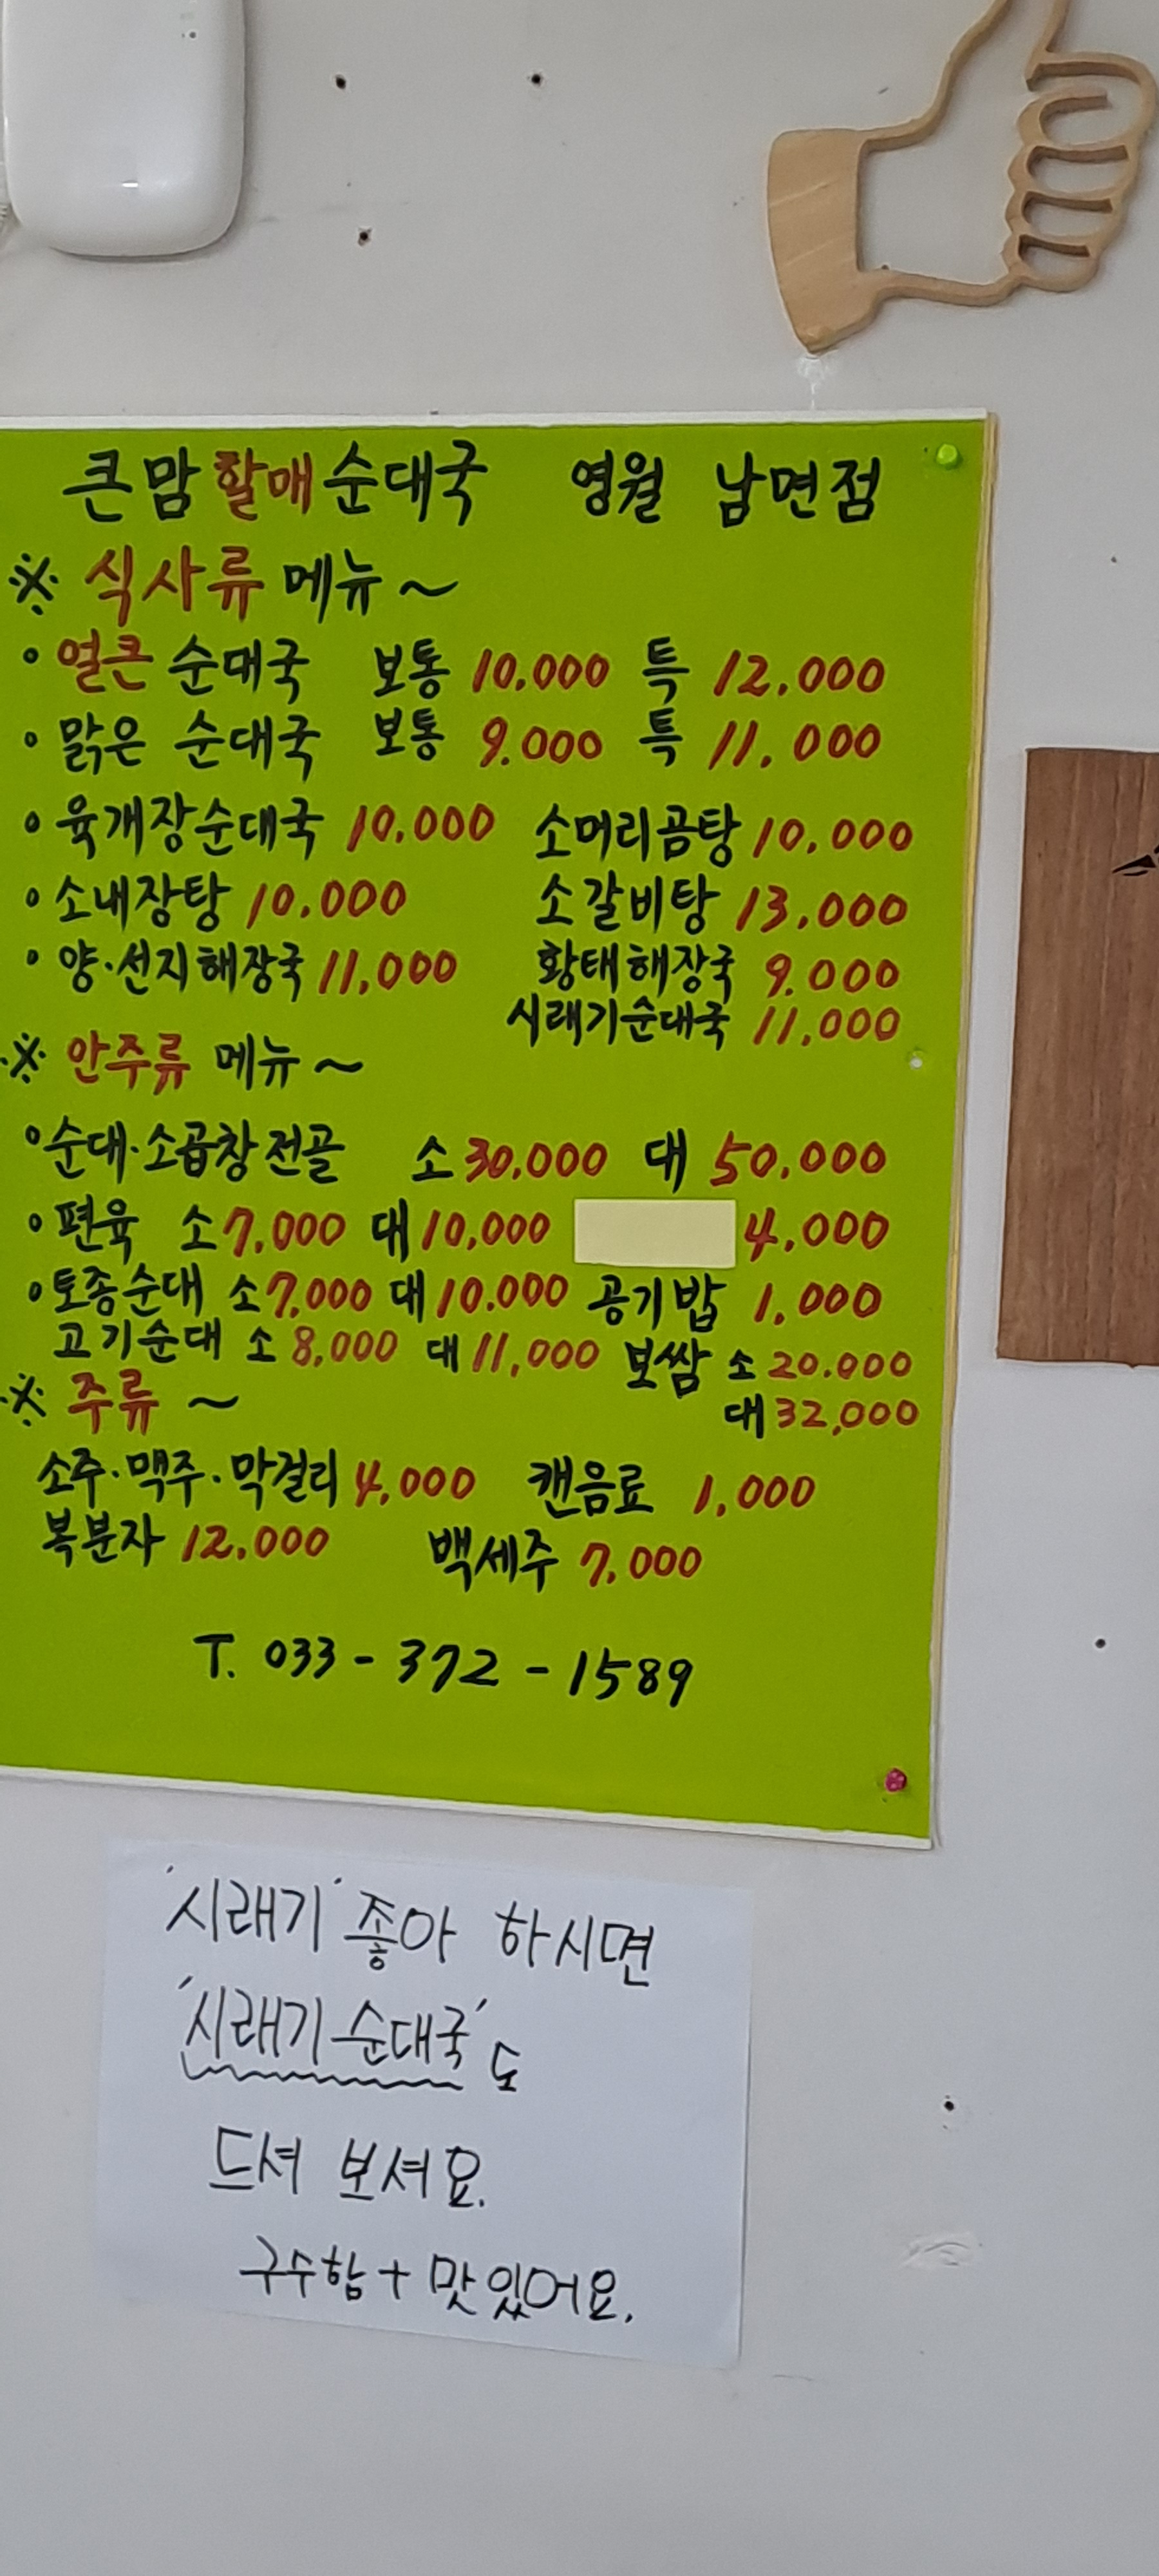 큰맘할매순대국 영월 남면점
※ 식사류 메뉴~
• 얼큰 순대국 보통 10.000 특 12.000
• 맑은 순대국 보통 9.000 특 11.000
• 육개장순대국 10.000 소머리곰탕 10.000
• 소내장탕 10.000 소갈비탕 13,000
• 양·선지해장국 11,000 황태해장국 9.000
시래기순대국 11,000
※ 안주류 메뉴~
• 순대·소곱창전골 소 30,000 대 50.000
• 편육 소 7.000 대 10,000 4,000
• 토종순대 소 7.000 대 10.000 공기밥 1.000
고기순대 소 8,000 대 11,000 보쌈 소 20.000
※ 주류 ~ 대 32,000
소주·맥주·막걸리 4,000 캔음료 1,000
복분자 12.000 백세주 7.000
T. 033-372-1589
'시래기' 좋아 하시면
'시래기 순대국'도
드셔 보셔요.
구수함+맛있어요.